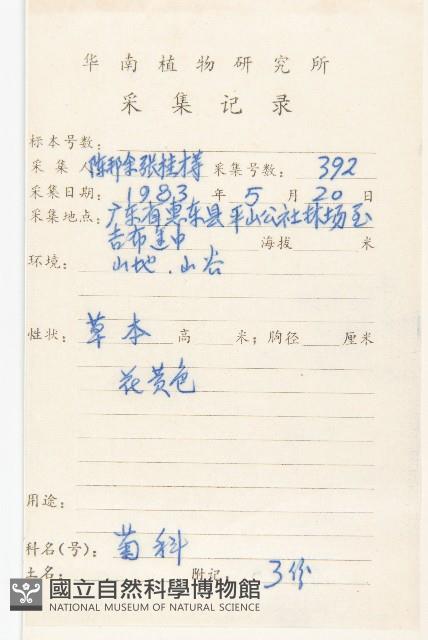 华南植物研究所
采集记录
标本号数:
采集人 陈邦余张桂才等 采集号数: 392
采集日期: 1983 年 5 月 20 日
采集地点: 广东省惠东县平山公社林场至
吉布途中 海拔 米
环境: 山地.山谷
性状: 草本 高 米; 胸径 厘米
花黄色
用途:
科名(号): 菊科
土名: 附记 3份
國立自然科學博物館
NATIONAL MUSEUM OF NATURAL SCIENCE